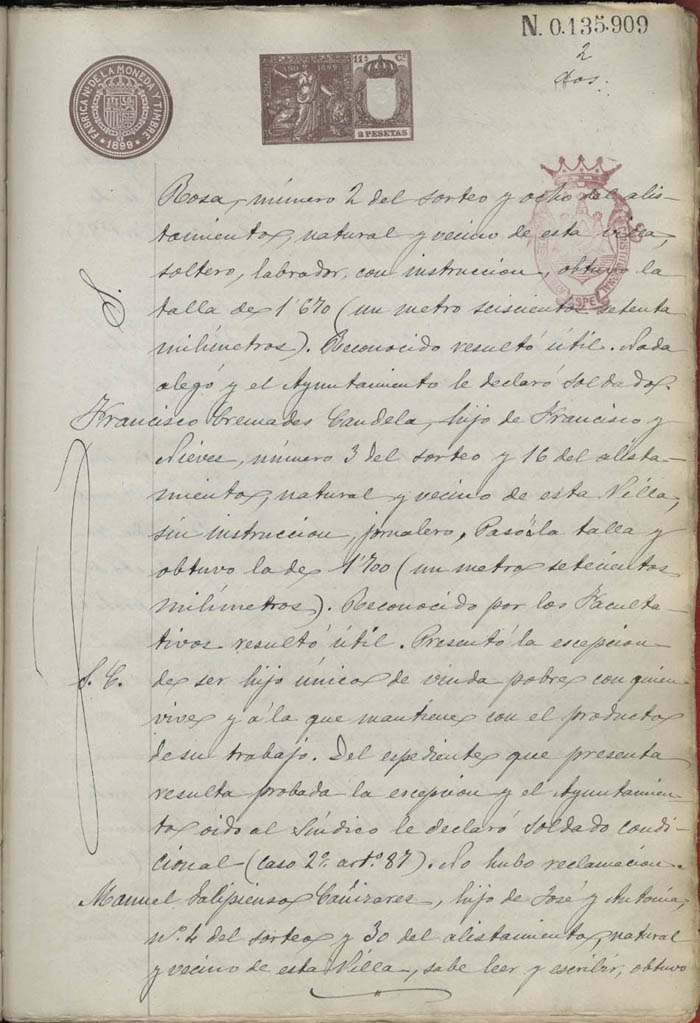 N. 0.135.909
2
dos.
FABRICA NAL. DE LA MONEDA Y TIMBRE
1899
AÑO 1899
11ª. C.
2 PESETAS
Rosa, número 2 del sorteo y ocho del alis-
tamiento, natural y vecino de esta villa,
soltero, labrador, con instruccion, obtuvo la
S. talla de 1'670 (un metro seiscientos setenta
milímetros). Reconocido resultó útil. Nada
alegó y el Ayuntamiento le declaró soldado.
Francisco Cremades Candela, hijo de Francisco y
Nieves, número 3 del sorteo y 16 del alista-
miento, natural y vecino de esta Villa,
sin instruccion, jornalero, Pasó la talla y
obtuvo la de 1'700 (un metro setecientos
milímetros). Reconocido por los Faculta-
tivos resultó útil. Presentó la escepcion
S. C. de ser hijo único de viuda pobre con quien
vive y á la que mantiene con el producto
de su trabajo. Del espediente que presenta
resulta probada la escepcion y el Ayuntamien-
to oido al Síndico le declaró Soldado condi-
cional (caso 2º. artº. 87). No hubo reclamacion.
Manuel Galipienso Cañizares, hijo de José y Antonia,
nº. 4 del sorteo y 30 del alistamiento, natural
y vecino de esta Villa, sabe leer y escribir, obtuvo